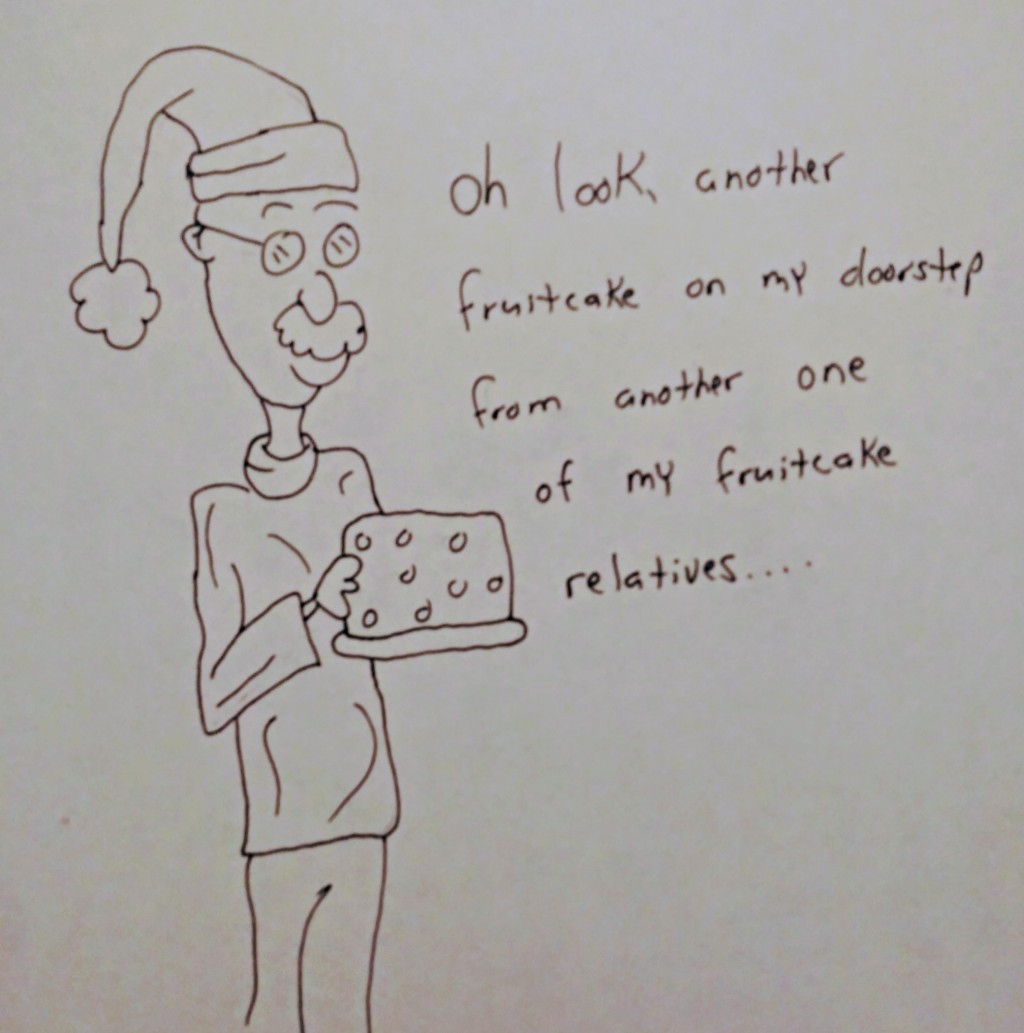 Oh look, another
fruitcake on my doorstep
from another one
of my fruitcake
relatives....